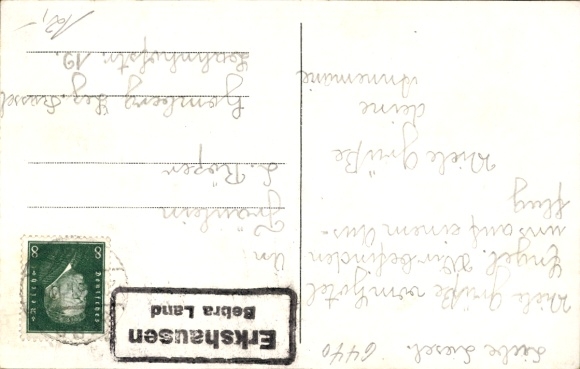 Liebe Liesel. 6440
Viele Grüße vom Hotel
Engel. Wir befinden
uns auf einem Aus-
flug
Viele Grüße
deine
Annemarie
Erkshausen
Bebra Land
8 8
Deutsches Reich
An
Fräulein
L. Rößen
Homberg Bez. Kassel
Bahnhofstr. 19.
12,-